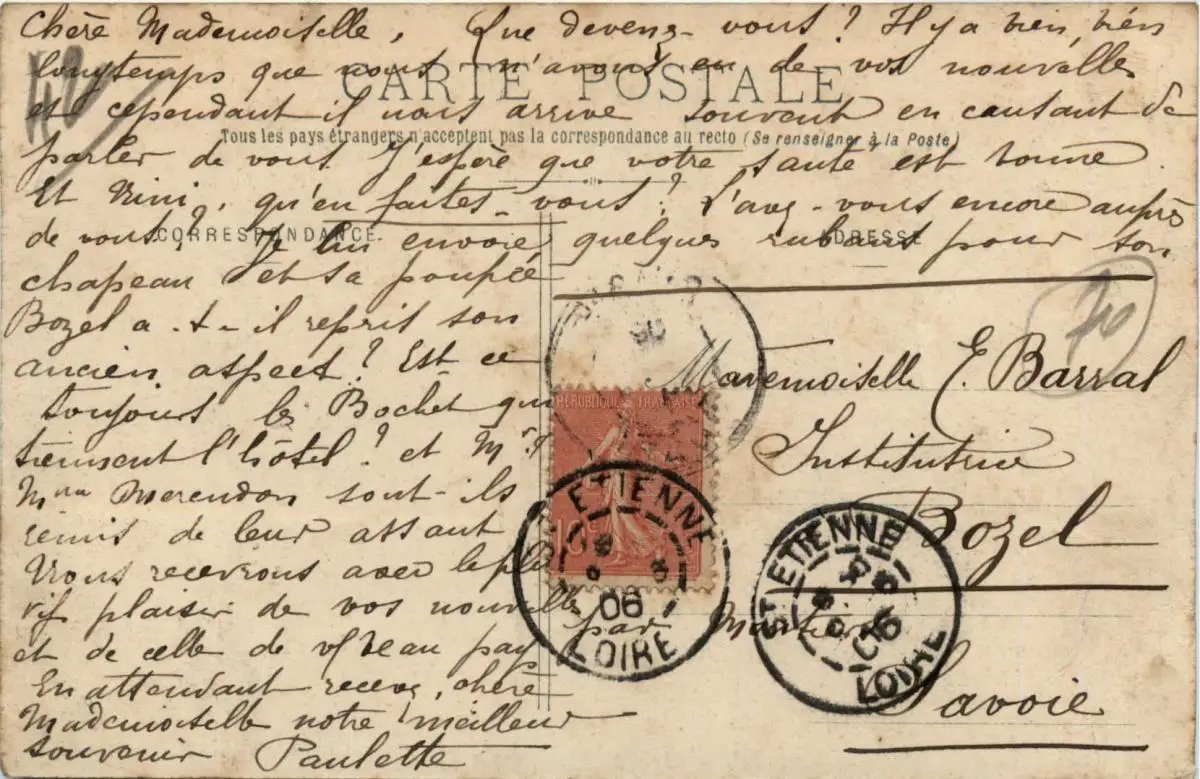 Chère Mademoiselle, Que devenez-vous? Il y a bien, bien
longtemps que nous n'avons eu de vos nouvelles
CARTE POSTALE
et cependant il nous arrive souvent en causant de
Tous les pays étrangers n'acceptent pas la correspondance au recto (Se renseigner à la Poste)
parler de vous. J'espère que votre santé est bonne.
Et Mini, qu'en faites-vous? L'avez-vous encore auprès
de vous? Je lui envoie quelques rubans pour son
CORRESPONDANCE
ADRESSE
chapeau et sa poupée
Bozel a-t-il repris son
ancien aspect? Est ce
toujours les Bochet qui
tiennent l'hôtel? et Mr &
Mme Merendon sont-ils
remis de leur assaut
Nous recevrons avec le plus
vif plaisir de vos nouvelles
et de celle de v/ beau pays
En attendant recevez, chère
Mademoiselle notre meilleur
souvenir Paulette
70
Mademoiselle E. Barral
Institutrice
Bozel
par Moutiers
Savoie
REPUBLIQUE FRANÇAISE
10
ST ETIENNE
06
LOIRE
ST ETIENNE
06
LOIRE